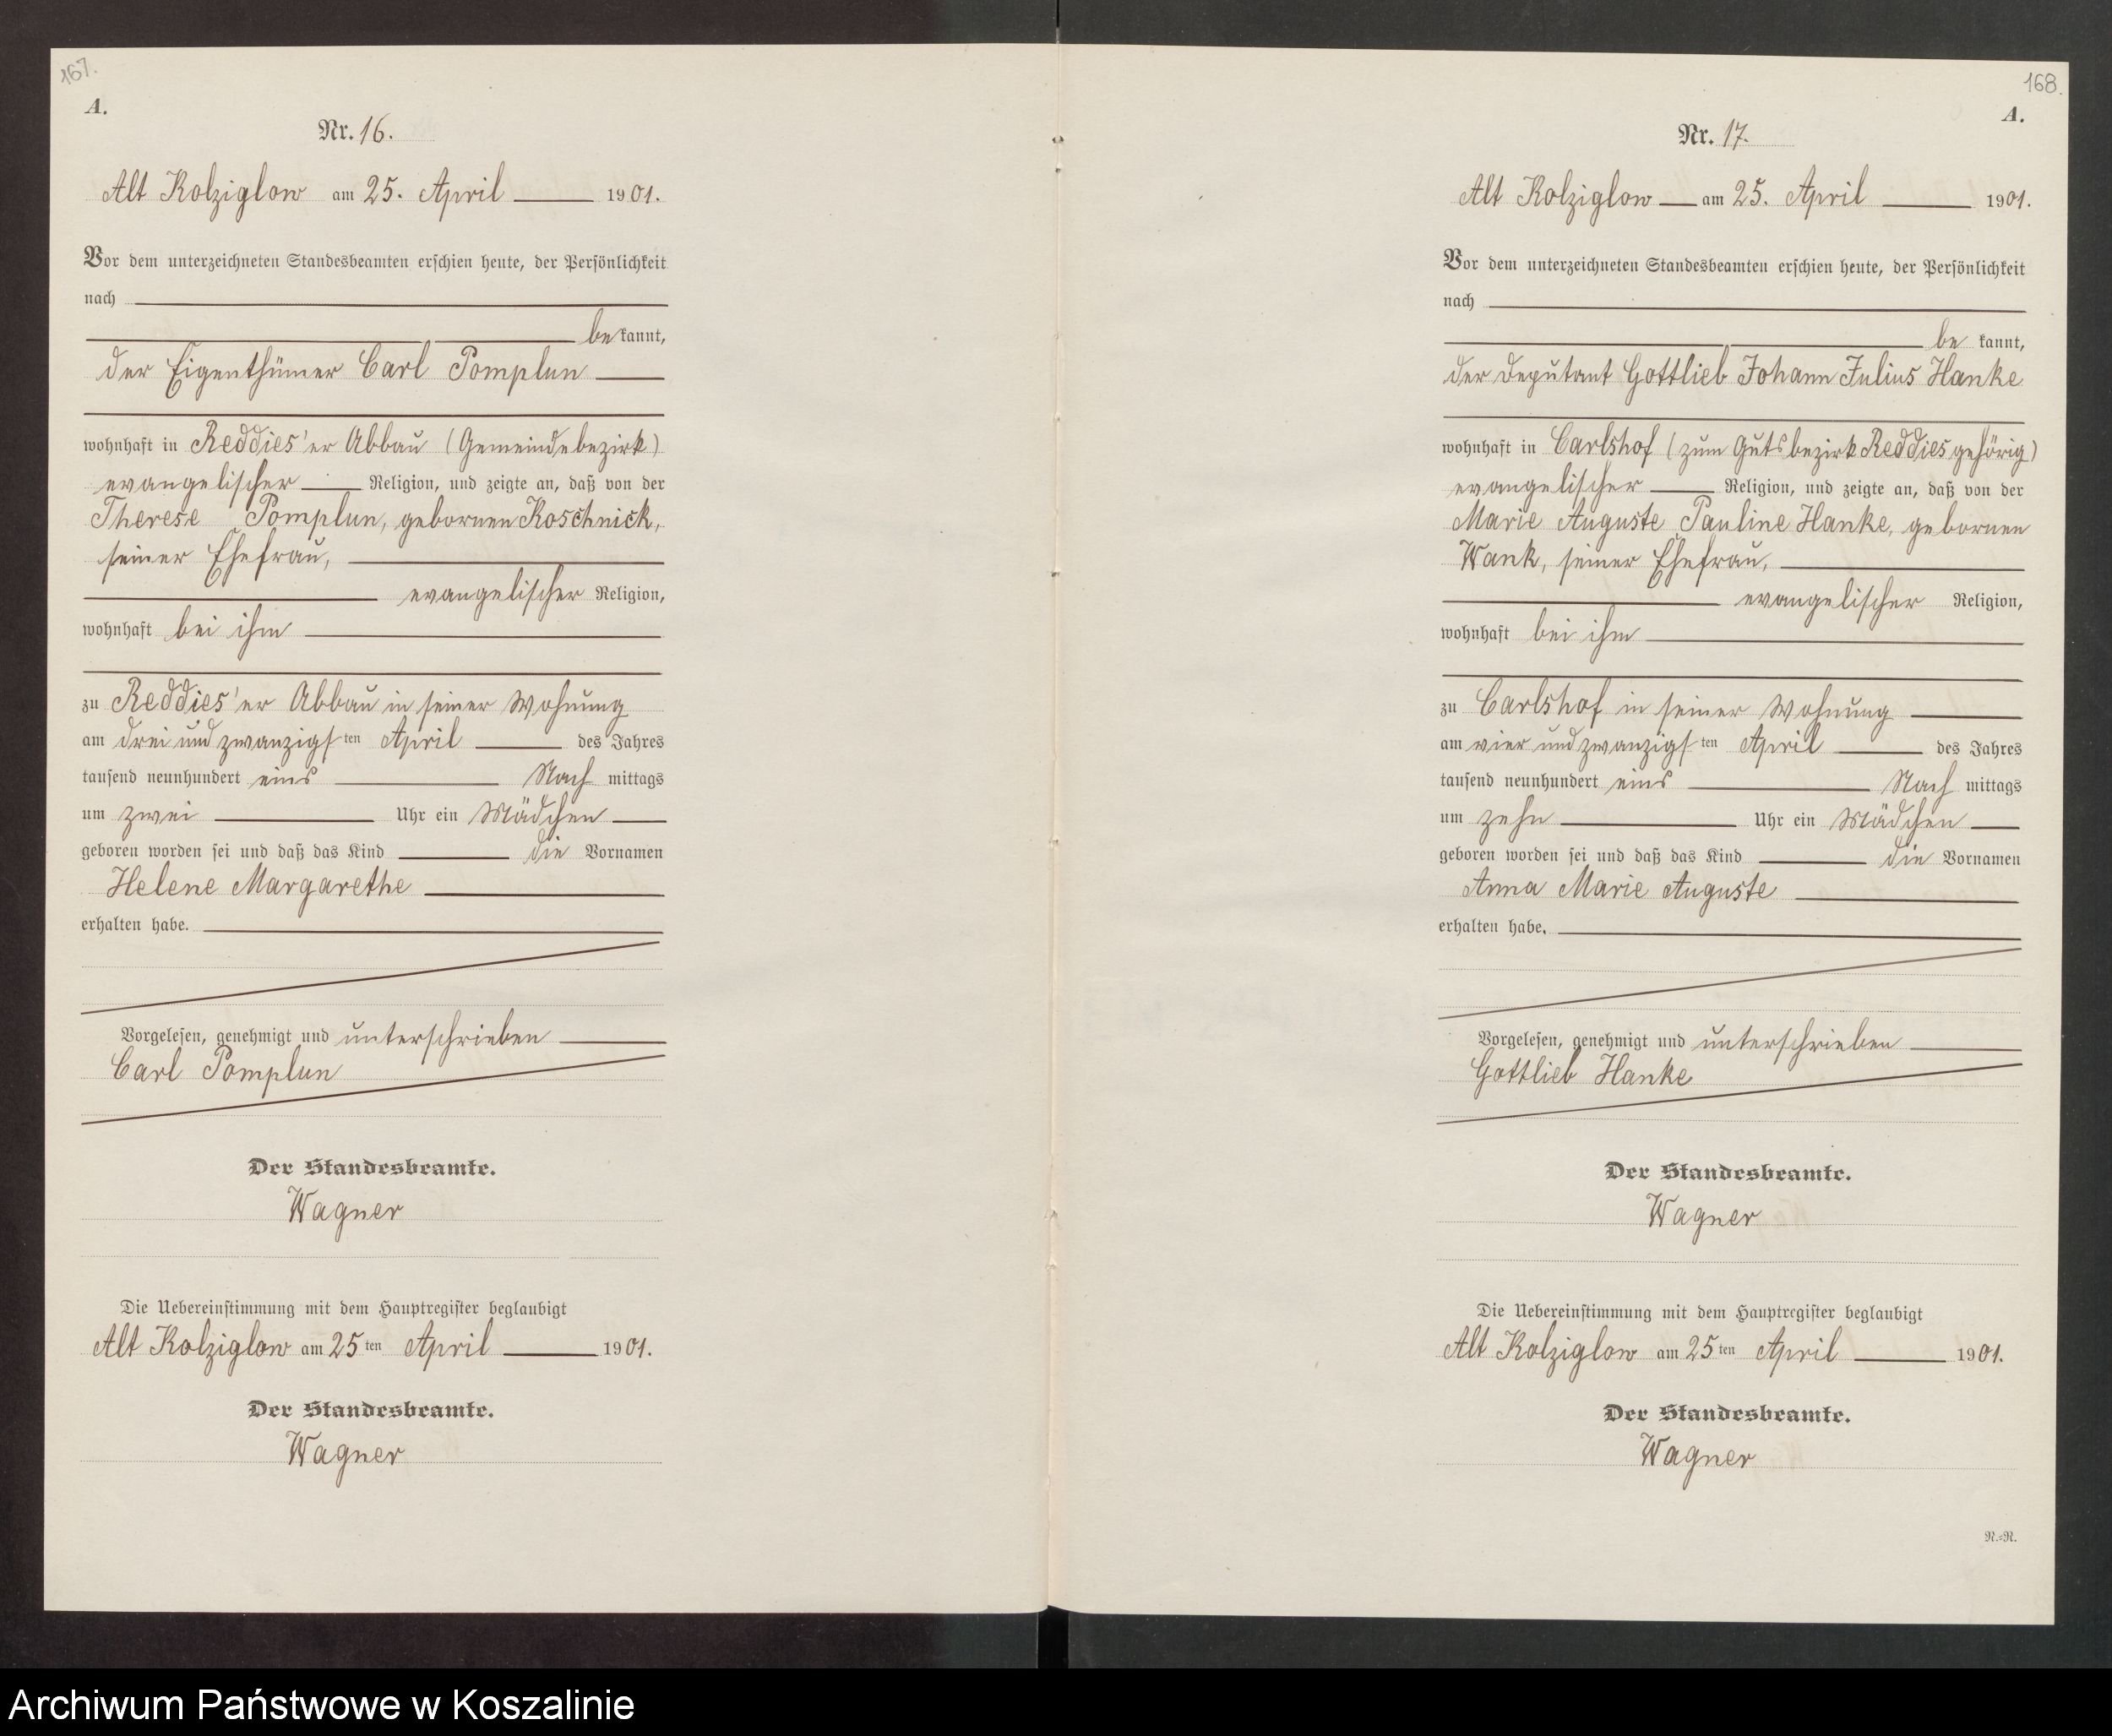 167.
A.
Nr. 16.
Alt Kolziglow am 25. April 1901.
Vor dem unterzeichneten Standesbeamten erschien heute, der Persönlichkeit
nach
be kannt,
der Eigenthümer Carl Pomplun
wohnhaft in Reddies'er Abbau (Gemeindebezirk)
evangelischer Religion, und zeigte an, daß von der
Therese Pomplun, gebornen Koschnick,
seiner Ehefrau,
evangelischer Religion,
wohnhaft bei ihm
zu Reddies'er Abbau in seiner Wohnung
am drei und zwanzigsten April des Jahres
tausend neunhundert eins Nach mittags
um zwei Uhr ein Mädchen
geboren worden sei und daß das Kind die Vornamen
Helene Margarethe
erhalten habe.
Vorgelesen, genehmigt und unterschrieben
Carl Pomplun
Der Standesbeamte.
Wagner
Die Uebereinstimmung mit dem Hauptregister beglaubigt
Alt Kolziglow am 25ten April 1901.
Der Standesbeamte.
Wagner
168.
A.
Nr. 17.
Alt Kolziglow am 25. April 1901.
Vor dem unterzeichneten Standesbeamten erschien heute, der Persönlichkeit
nach
be kannt,
der Deputant Gottlieb Johann Julius Hanke
wohnhaft in Carlshof (zum Gutsbezirk Reddies gehörig)
evangelischer Religion, und zeigte an, daß von der
Marie Auguste Pauline Hanke, gebornen
Wank, seiner Ehefrau,
evangelischer Religion,
wohnhaft bei ihm
zu Carlshof in seiner Wohnung
am vier und zwanzigsten April des Jahres
tausend neunhundert eins Nach mittags
um zehn Uhr ein Mädchen
geboren worden sei und daß das Kind die Vornamen
Anna Marie Auguste
erhalten habe.
Vorgelesen, genehmigt und unterschrieben
Gottlieb Hanke
Der Standesbeamte.
Wagner
Die Uebereinstimmung mit dem Hauptregister beglaubigt
Alt Kolziglow am 25ten April 1901.
Der Standesbeamte.
Wagner
R.=R.
Archiwum Państwowe w Koszalinie